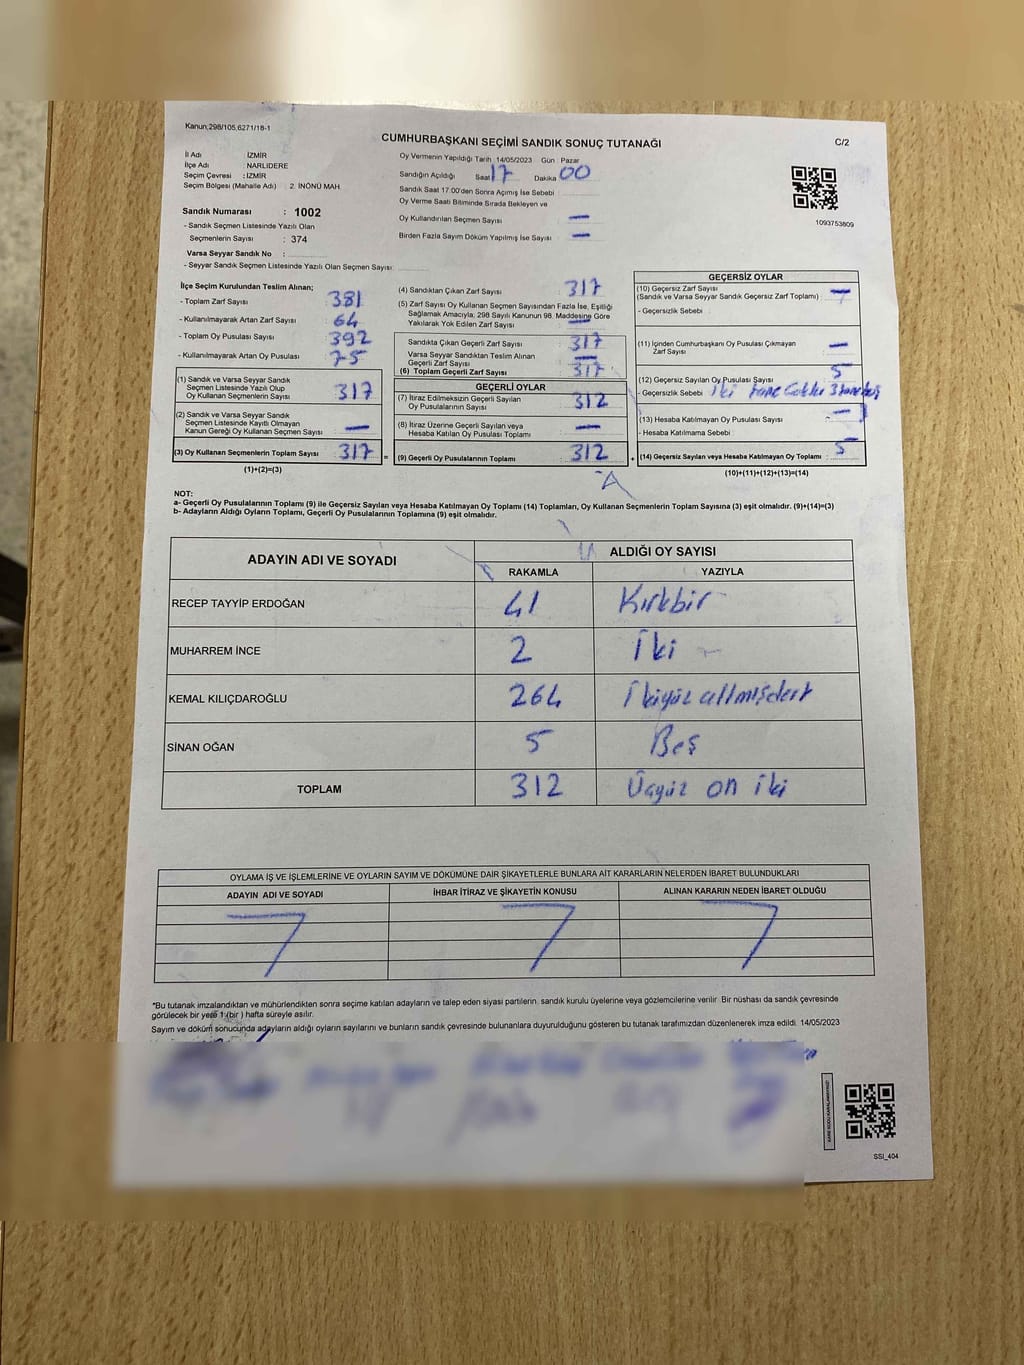 Kanun;298/105,6271/18-1
CUMHURBAŞKANI SEÇİMİ SANDIK SONUÇ TUTANAĞI
C/2
İl Adı : İZMİR
İlçe Adı : NARLIDERE
Seçim Çevresi : İZMİR
Seçim Bölgesi (Mahalle Adı) : 2. İNÖNÜ MAH.
Sandık Numarası : 1002
- Sandık Seçmen Listesinde Yazılı Olan
Seçmenlerin Sayısı : 374
Varsa Seyyar Sandık No :
- Seyyar Sandık Seçmen Listesinde Yazılı Olan Seçmen Sayısı:
Oy Vermenin Yapıldığı Tarih 14/05/2023 Gün : Pazar
Sandığın Açıldığı Saat 17 Dakika 00
Sandık Saat 17.00'den Sonra Açımış İse Sebebi
Oy Verme Saati Bitiminde Sırada Bekleyen ve
Oy Kullandırılan Seçmen Sayısı : —
Birden Fazla Sayım Döküm Yapılmış İse Sayısı : —
1093753809
İlçe Seçim Kurulundan Teslim Alınan;
- Toplam Zarf Sayısı : 381
- Kullanılmayarak Artan Zarf Sayısı : 64
- Toplam Oy Pusulası Sayısı : 392
- Kullanılmayarak Artan Oy Pusulası : 75
(1) Sandık ve Varsa Seyyar Sandık
Seçmen Listesinde Yazılı Olup
Oy Kullanan Seçmenlerin Sayısı : 317
(2) Sandık ve Varsa Seyyar Sandık
Seçmen Listesinde Kayıtlı Olmayan
Kanun Gereği Oy Kullanan Seçmen Sayısı : —
(3) Oy Kullanan Seçmenlerin Toplam Sayısı : 317 =
(1)+(2)=(3)
(4) Sandıktan Çıkan Zarf Sayısı : 317
(5) Zarf Sayısı Oy Kullanan Seçmen Sayısından Fazla İse, Eşitliği
Sağlamak Amacıyla; 298 Sayılı Kanunun 98. Maddesine Göre
Yakılarak Yok Edilen Zarf Sayısı : —
Sandıkta Çıkan Geçerli Zarf Sayısı : 317
Varsa Seyyar Sandıktan Teslim Alınan
Geçerli Zarf Sayısı : —
(6) Toplam Geçerli Zarf Sayısı : 317
GEÇERLİ OYLAR
(7) İtiraz Edilmeksizin Geçerli Sayılan
Oy Pusulalarının Sayısı : 312
(8) İtiraz Üzerine Geçerli Sayılan veya
Hesaba Katılan Oy Pusulası Toplamı : —
(9) Geçerli Oy Pusulalarının Toplamı : 312 +
GEÇERSİZ OYLAR
(10) Geçersiz Zarf Sayısı
(Sandık ve Varsa Seyyar Sandık Geçersiz Zarf Toplamı) : —
- Geçersizlik Sebebi :
(11) İçinden Cumhurbaşkanı Oy Pusulası Çıkmayan
Zarf Sayısı : —
(12) Geçersiz Sayılan Oy Pusulası Sayısı : 5
- Geçersizlik Sebebi : İki tane 3 tane boş
(13) Hesaba Katılmayan Oy Pusulası Sayısı : —
- Hesaba Katılmama Sebebi :
(14) Geçersiz Sayılan veya Hesaba Katılmayan Oy Toplamı : 5
(10)+(11)+(12)+(13)=(14)
NOT:
a- Geçerli Oy Pusulalarının Toplamı (9) ile Geçersiz Sayılan veya Hesaba Katılmayan Oy Toplamı (14) Toplamları, Oy Kullanan Seçmenlerin Toplam Sayısına (3) eşit olmalıdır. (9)+(14)=(3)
b- Adayların Aldığı Oyların Toplamı, Geçerli Oy Pusulalarının Toplamına (9) eşit olmalıdır.
ADAYIN ADI VE SOYADI
ALDIĞI OY SAYISI
RAKAMLA YAZIYLA
RECEP TAYYİP ERDOĞAN 41 Kırkbir
MUHARREM İNCE 2 İki
KEMAL KILIÇDAROĞLU 264 İkiyüz altmışdört
SİNAN OĞAN 5 Beş
TOPLAM 312 Üçyüz on iki
OYLAMA İŞ VE İŞLEMLERİNE VE OYLARIN SAYIM VE DÖKÜMÜNE DAİR ŞİKAYETLERLE BUNLARA AİT KARARLARIN NELERDEN İBARET BULUNDUKLARI
ADAYIN ADI VE SOYADI İHBAR İTİRAZ VE ŞİKAYETİN KONUSU ALINAN KARARIN NEDEN İBARET OLDUĞU
*Bu tutanak imzalandıktan ve mühürlendikten sonra seçime katılan adayların ve talep eden siyasi partilerin, sandık kurulu üyelerine veya gözlemcilerine verilir. Bir nüshası da sandık çevresinde
görülecek bir yere 1 (bir ) hafta süreyle asılır.
Sayım ve döküm sonucunda adayların aldığı oyların sayılarını ve bunların sandık çevresinde bulunanlara duyurulduğunu gösteren bu tutanak tarafımızdan düzenlenerek imza edildi. 14/05/2023
KARE KODU KARALAMAYINIZ!
SSI_404